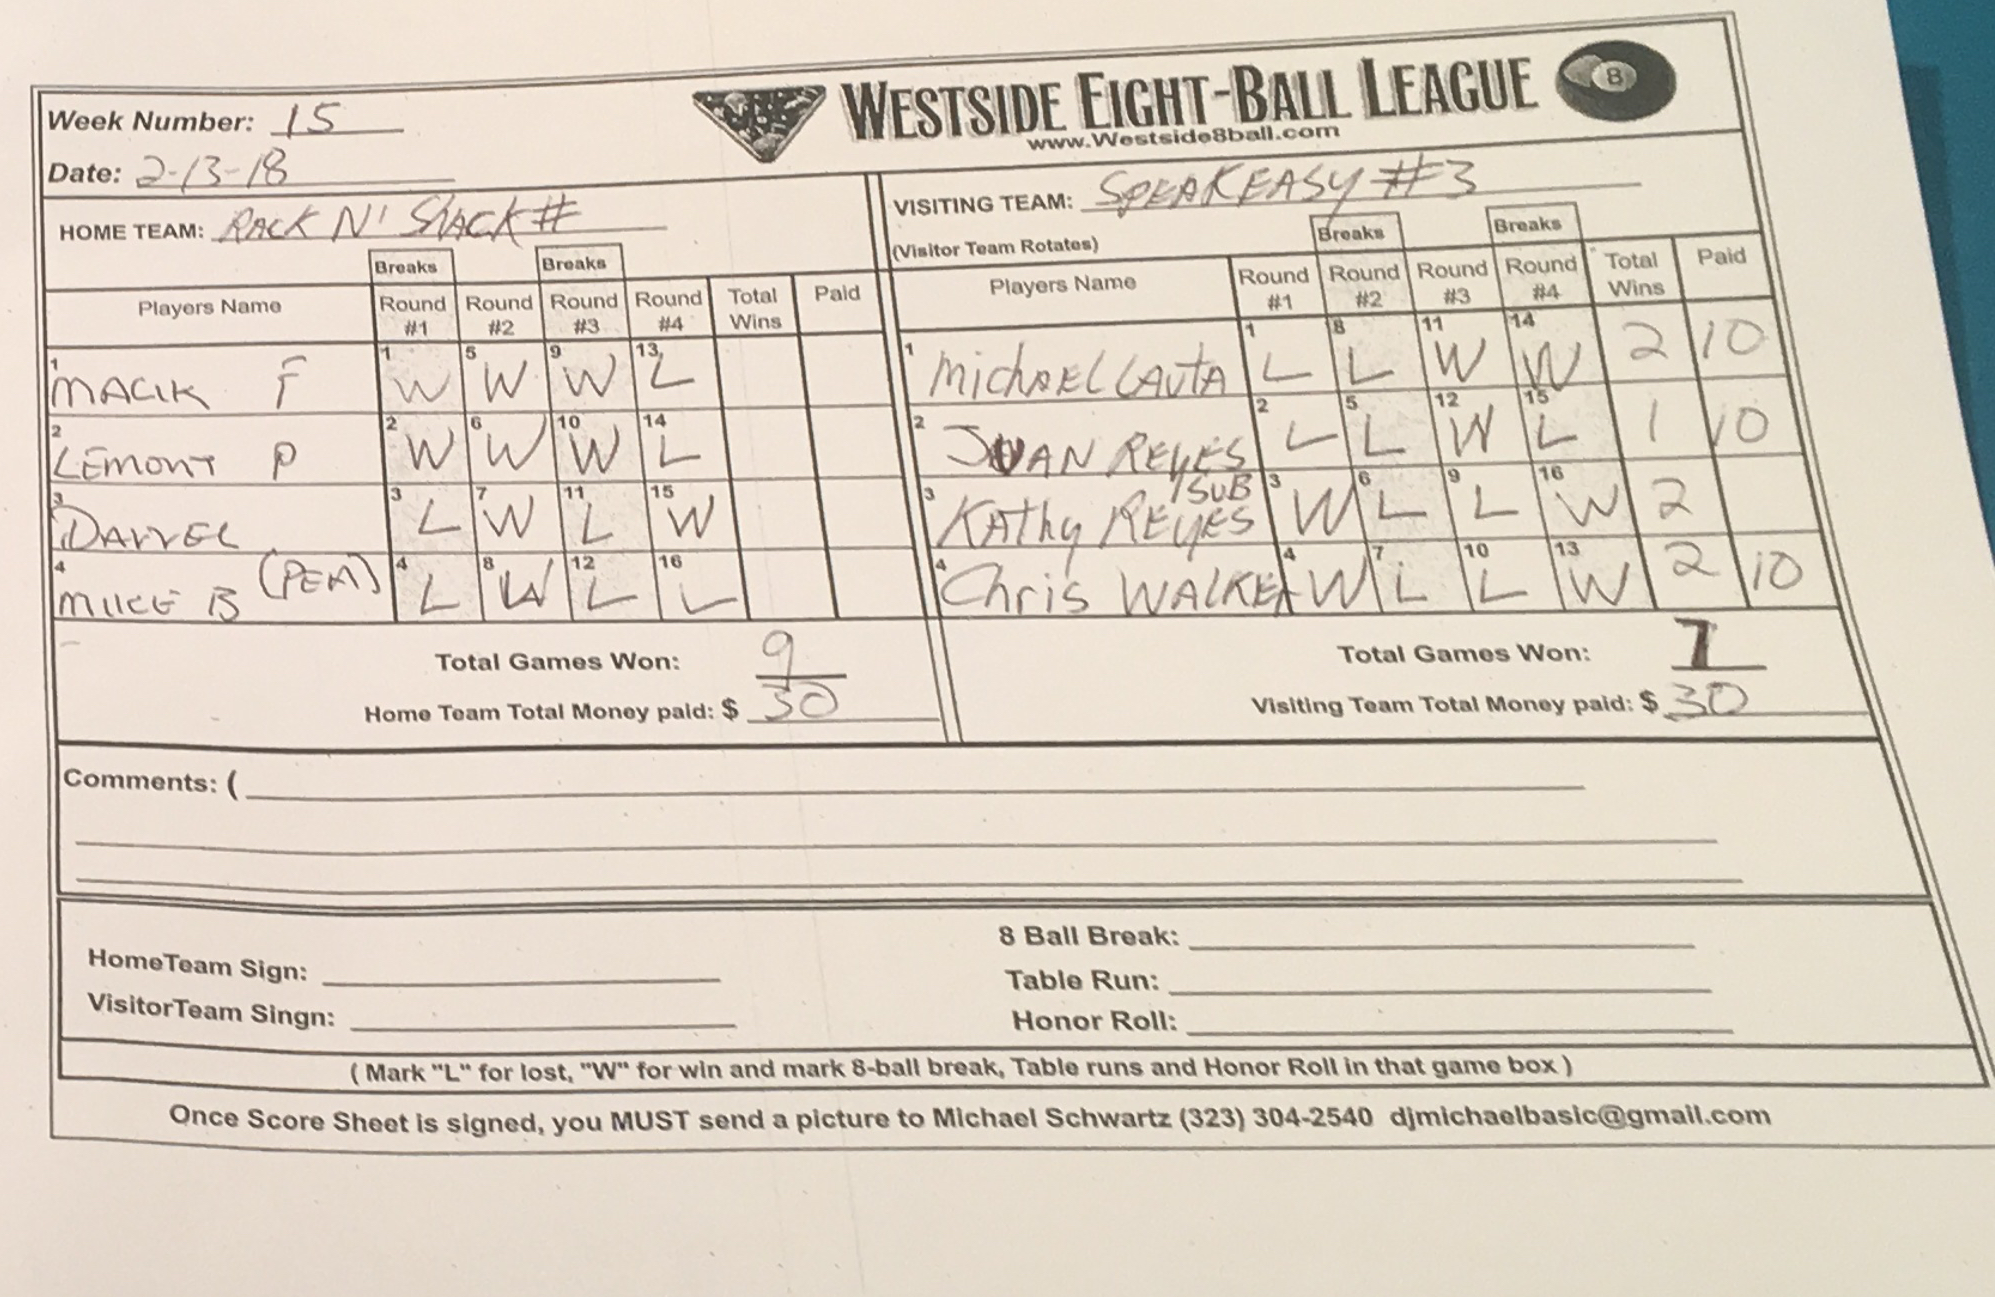 Week Number: 15
WESTSIDE EIGHT-BALL LEAGUE 8
www.Westside8ball.com
Date: 2-13-18
HOME TEAM: RACK N' STACK #
VISITING TEAM: SPEAKEASY #3
(Visitor Team Rotates)
Breaks Breaks Breaks Breaks
Players Name Round #1 Round #2 Round #3 Round #4 Total Wins Paid Players Name Round #1 Round #2 Round #3 Round #4 Total Wins Paid
1 MACIK F 1 W 5 W 9 W 13 L 1 MICHAEL LAUTA 1 L 8 L 11 W 14 W 2 10
2 LEMONT P 2 W 6 W 10 W 14 L 2 JUAN REYES 2 L 5 L 12 W 15 L 1 10
3 DARREL 3 L 7 W 11 L 15 W 3 KAThy REYES /SUB 3 W 6 L 9 L 16 W 2
4 MIKE B (PEM) 4 L 8 W 12 L 16 L 4 Chris WALKER 4 W 7 L 10 L 13 W 2 10
Total Games Won: 9 Total Games Won: 7
Home Team Total Money paid: $ 30 Visiting Team Total Money paid: $ 30
Comments: (
8 Ball Break:
HomeTeam Sign:
Table Run:
VisitorTeam Singn:
Honor Roll:
( Mark "L" for lost, "W" for win and mark 8-ball break, Table runs and Honor Roll in that game box )
Once Score Sheet is signed, you MUST send a picture to Michael Schwartz (323) 304-2540 djmichaelbasic@gmail.com